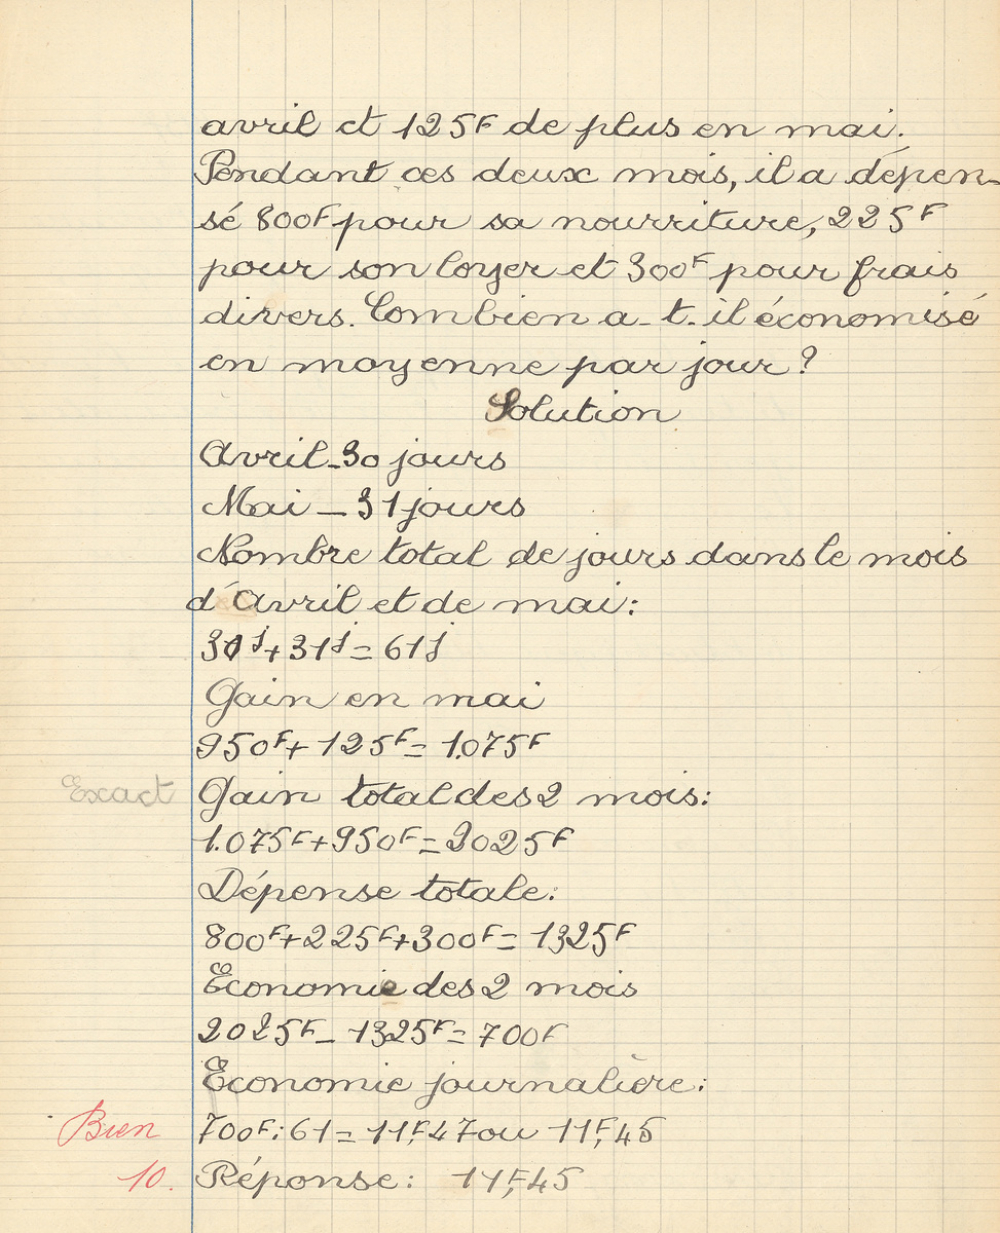 avril et 125F de plus en mai.
Pendant ces deux mois, il a dépen-
sé 800F pour sa nourriture, 225F
pour son loyer et 300F pour frais
divers. Combien a-t-il économisé
en moyenne par jour ?
Solution
Avril - 30 jours
Mai - 31 jours
Nombre total de jours dans le mois
d'Avril et de mai :
30j + 31j = 61j
Gain en mai
950F + 125F = 1.075F
Exact Gain total des 2 mois :
1.075F + 950F = 2025F
Dépense totale :
800F + 225F + 300F = 1325F
Economie des 2 mois
2025F - 1325F = 700F
Economie journalière :
Bien 700F : 61 = 11F,47 ou 11F,45
10. Réponse : 11F,45